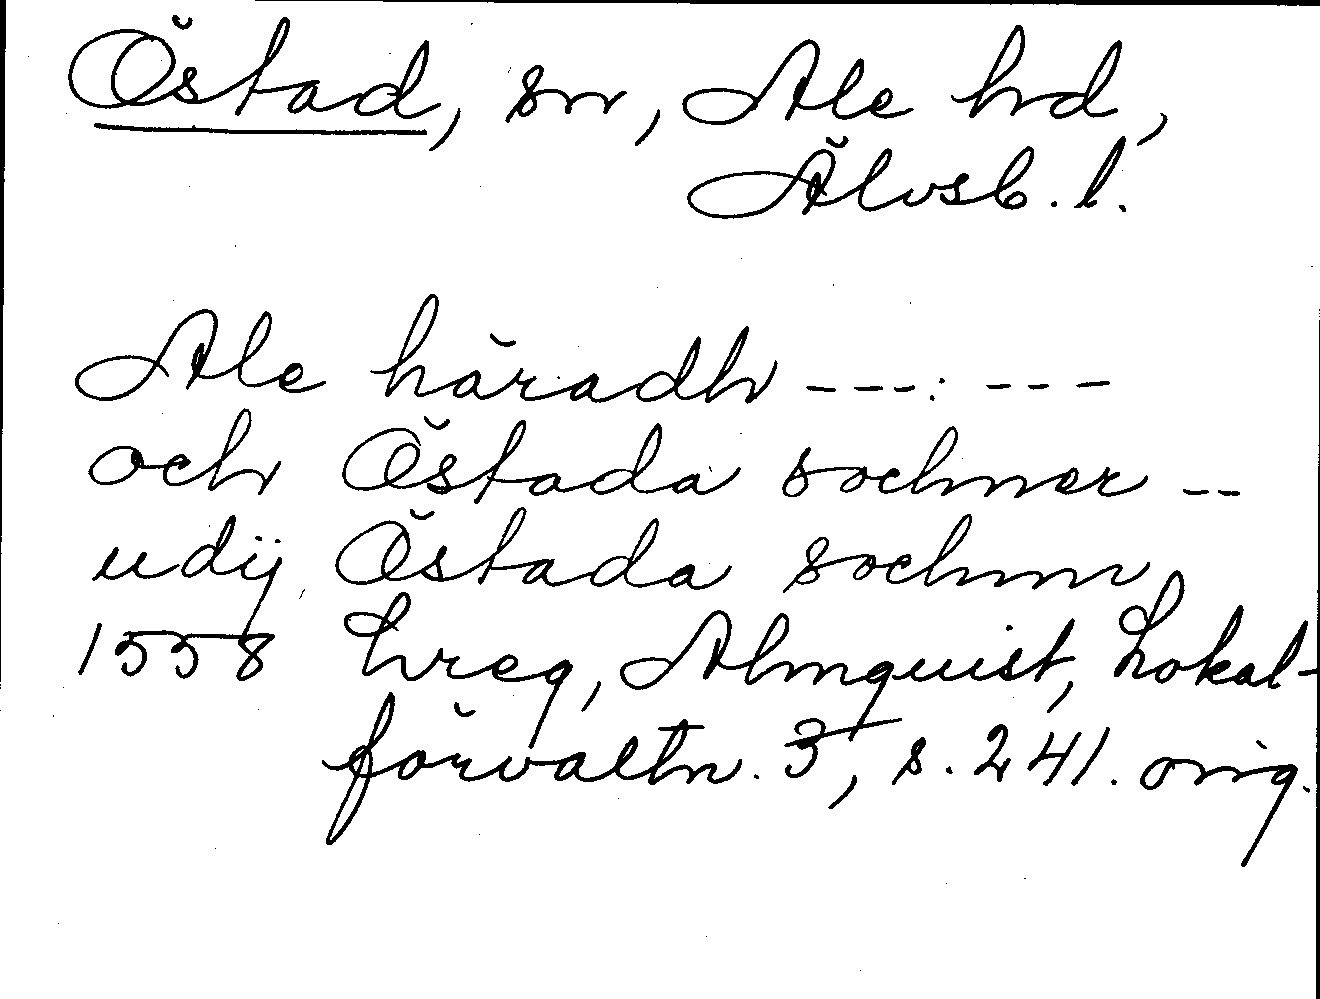 Östad, sn, Ale hd,
Älvsb. l.
Ale häradh ---: ---
och Östada sochner --
udij Östada sochnn
1558 hreg, Almquist, Lokal-
förvaltn. 3, s. 241. orig.